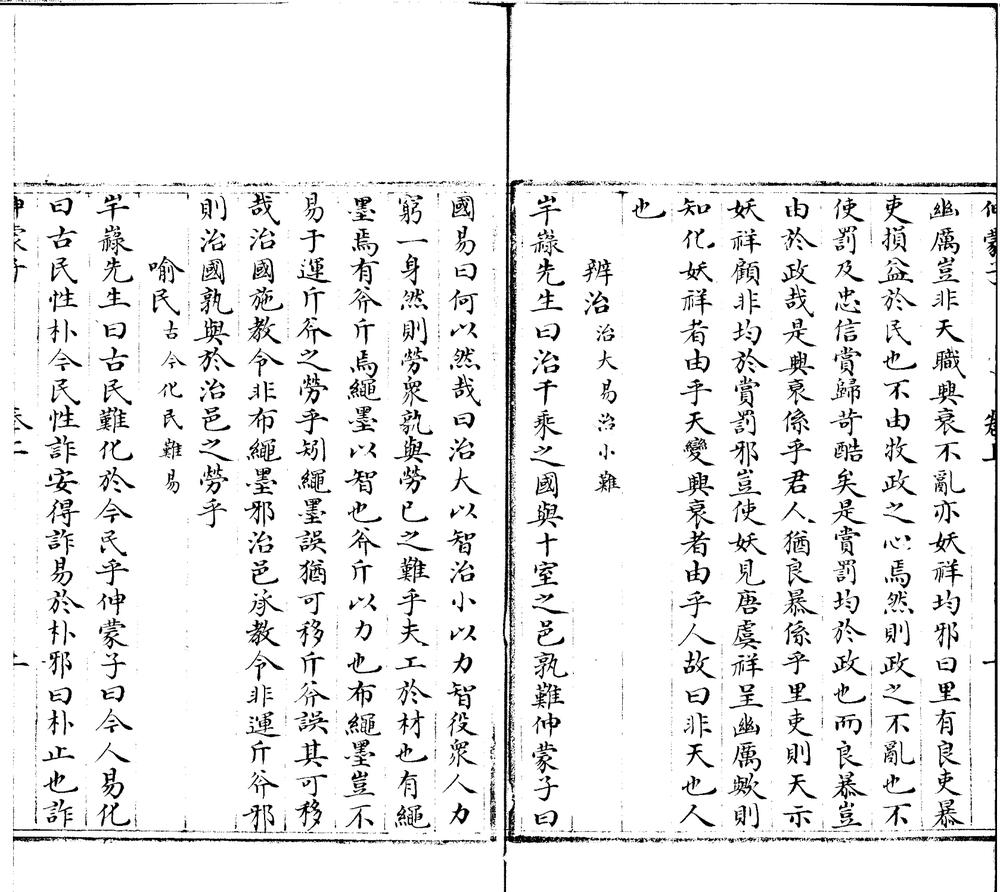 幽厲豈非天職興衰不亂亦妖祥均邪曰里有良吏暴
吏損益於民也不由牧政之心焉然則政之不亂也不
使罰及忠信賞歸苛酷矣是賞罰均於政也而良暴豈
由於政哉是興衰係乎君人猶良暴係乎里吏則天示
妖祥顧非均於賞罰邪豈使妖見唐虞祥呈幽厲歟則
知化妖祥者由乎天變興衰者由乎人故曰非天也人
也
辨治治大易治小難
芊嶽先生曰治千乘之國與十室之邑孰難伸蒙子曰
國易曰何以然哉曰治大以智治小以力智役衆人力
窮一身然則勞衆孰與勞已之難乎夫工於材也有繩
墨焉有斧斤焉繩墨以智也斧斤以力也布繩墨豈不
易于運斤斧之勞乎矧繩墨誤猶可移斤斧誤其可移
哉治國施教令非布繩墨邪治邑承教令非運斤斧邪
則治國孰與於治邑之勞乎
喻民古今化民難易
芊嶽先生曰古民難化於今民乎伸蒙子曰今人易化
曰古民性朴今民性詐安得詐易於朴邪曰朴止也詐